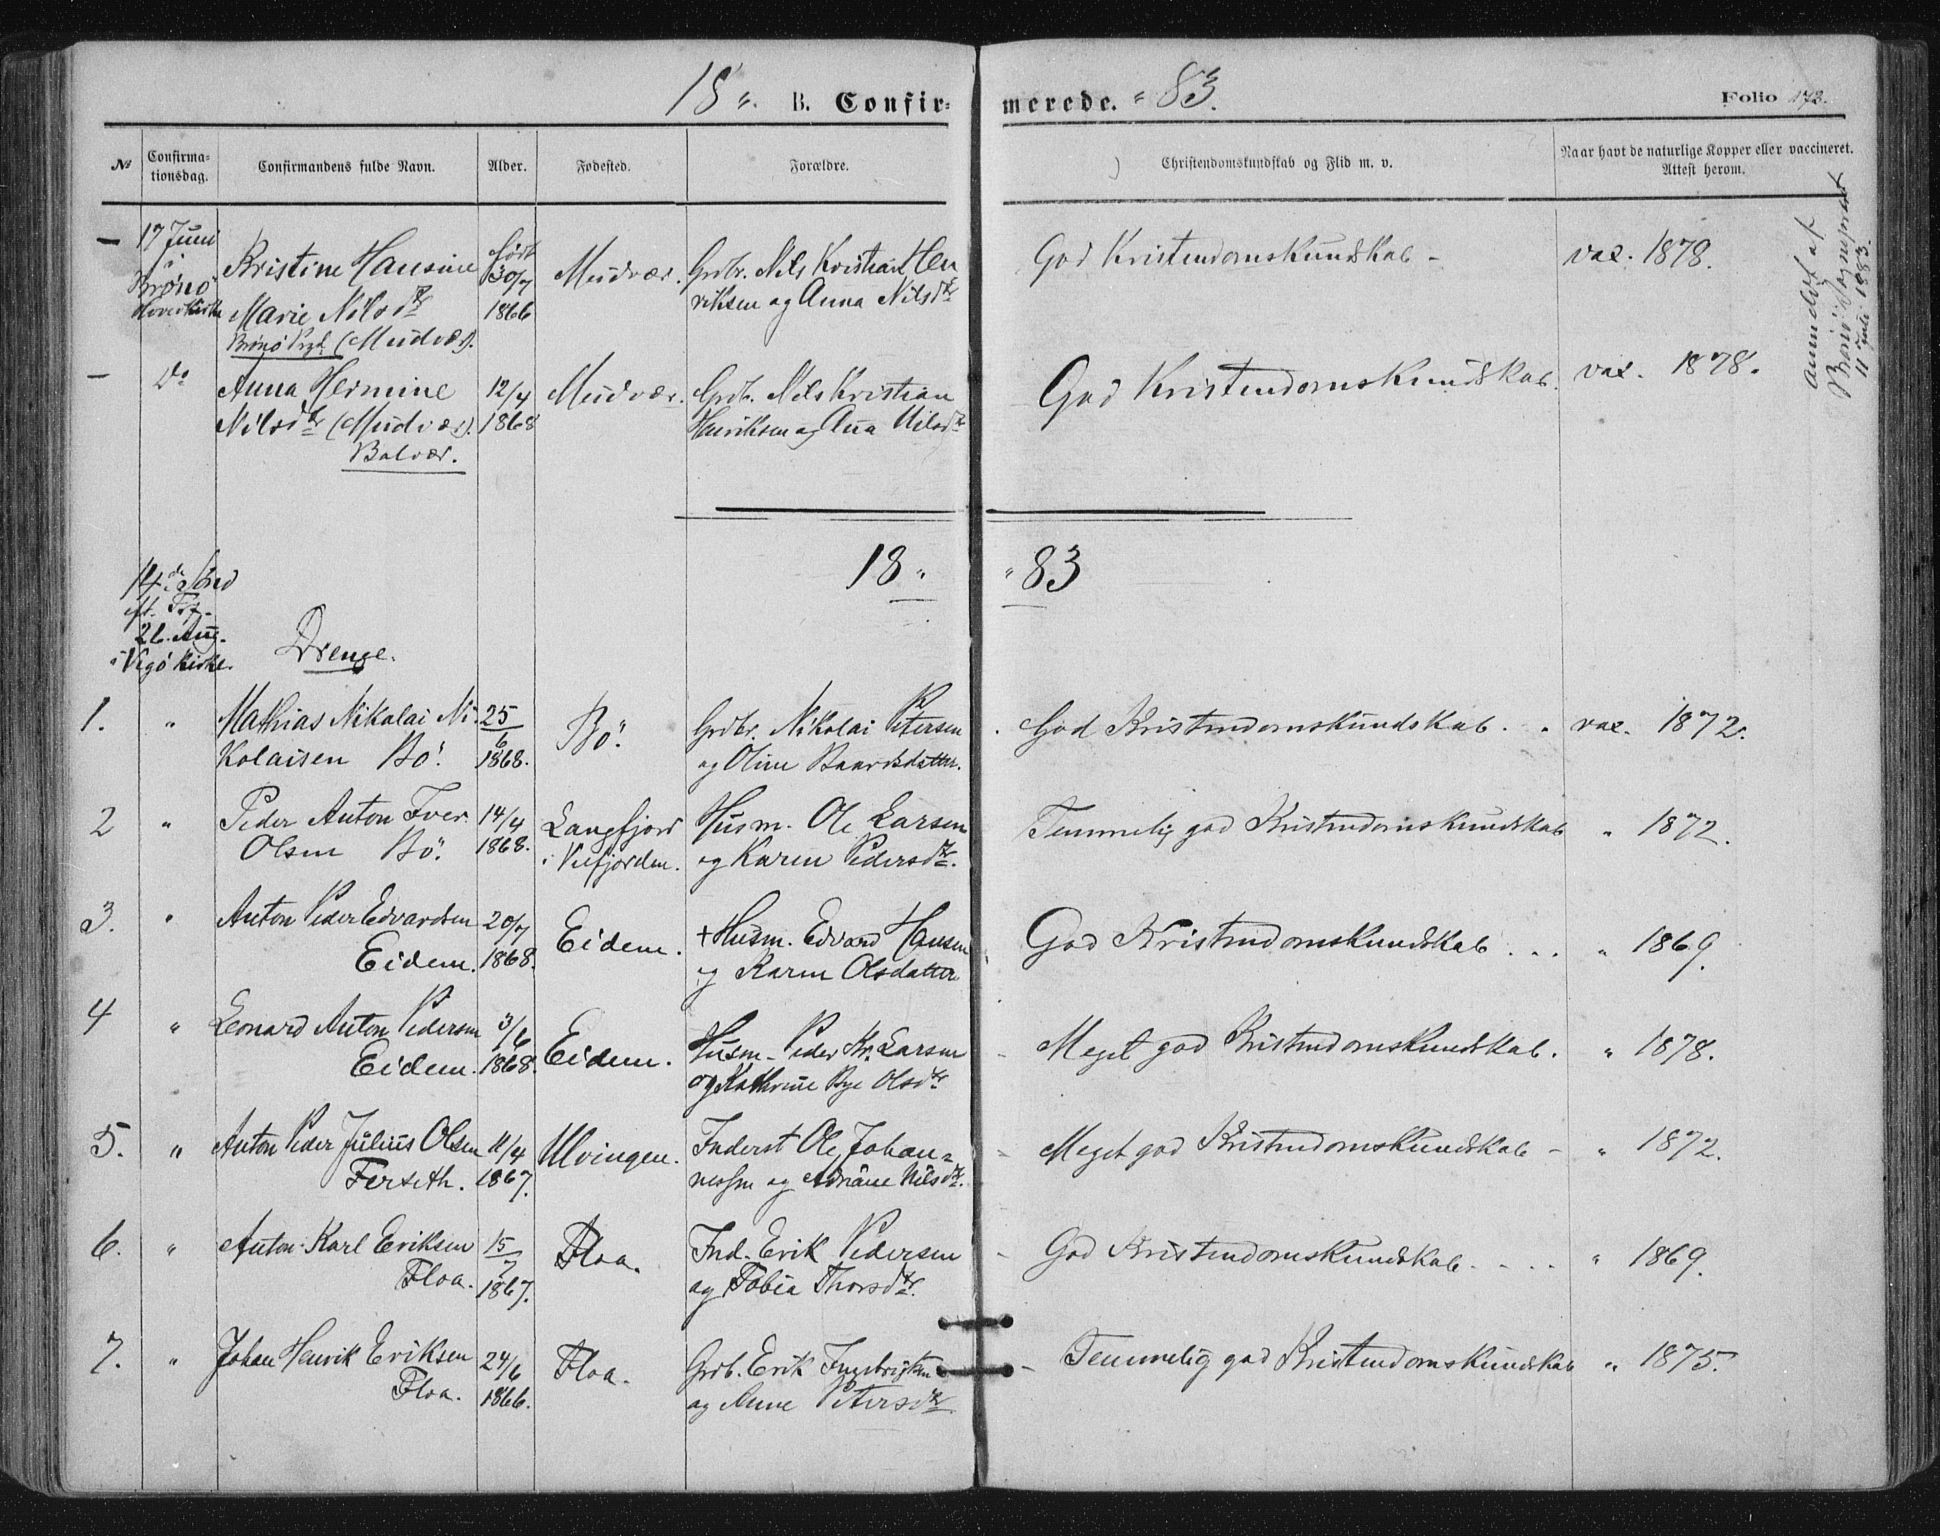 18 „. B. Confir- merede. „ 83. Folio 173.
№ Confirma- tionsdag. Confirmandens fulde Navn. Alder. Fødested. Forældre. Christendomskundskab og Flid m. v. Naar havt de naturlige Kopper eller vaccineret. Attest herom.
— 17 Juni i Brønø Hovedkirke
Kristine Hansine
Marie Nilsdtr
Brønø Prgd. (Mudvær).
født 30/7 1866
Mudvær.
Grdbr. Nils Kristian Hen
riksen og Anna Nilsdtr
God Kristendomskundskab -
vax. 1878.
anmeldt af
Brønø Sogneprest
11 Juli 1883.
— Do
Anna Hermine
Nilsdtr (Mudvær).
Balvær.
12/4 1868
Mudvær.
Grdb. Nils Kristian
Henriksen og Ana Nilsdtr
God Kristendomskundskab.
vax. 1878.
18 „ „ 83
14de Sønd
eft. Tref.
26. Aug.
i Vegø Kirke.
Drenge.
1. „
Mathias Nikolai Ni-
kolaisen Bø.
25/6 1868.
Bø.
Grdbr. Nikolai Petersen
og Oline Baardsdatter.
God Kristendomskundskab. .
vax. 1872.
2 „
Peder Anton Iver
Olsen Bø.
14/4 1868.
Langfjord
i Velfjorden.
Husm. Ole Larsen
og Karen Pedersdtr.
Temmelig god Kristendomskundskab
„ 1872.
3. „
Anton Peder Edvardsen
Eidem.
20/7 1868.
Eidem.
+ Husm. Edvard Hansen
og Karen Olsdatter
God Kristendomskundskab . . .
„ 1869.
4 „
Leonard Anton Pedersen
Eidem.
3/6 1868.
Eidem.
Husm. Peder Kr. Larsen
og Kathrine Bye Olsdtr
- Meget god Kristendomskundskab.
„ 1878.
5. „
Anton Peder Julius Olsen
Ferseth.
11/4 1867.
Ulvingen.
Inderst Ole Johan-
nessen og Adriane Nilsdtr.
- Meget god Kristendomskundskab -
„ 1872.
6. „
Anton Karl Eriksen
Floa.
15/7 1867.
Floa.
Ind. Erik Pedersen
og Tobia Thorsdtr.
- God Kristendomskundskab. . . .
„ 1869.
7. „
Johan Henrik Eriksen
Floa.
24/6 1866.
Floa.
Grdb. Erik Ingebrigtsen
og Anne Petersdtr
- Temmelig god Kristendomskundskab
„ 1875.